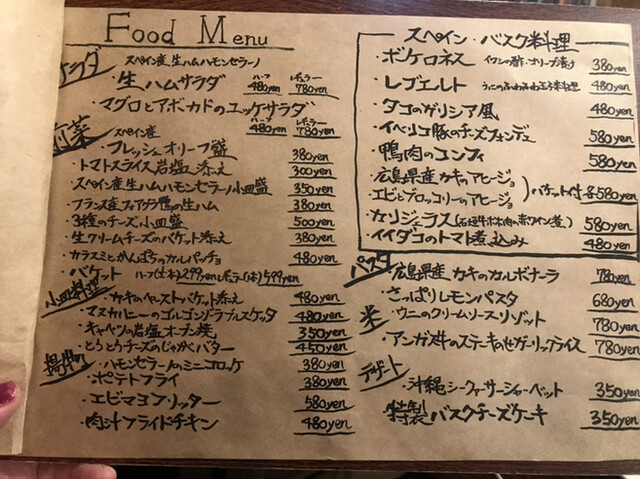 Food Menu
サラダ
スペイン産生ハムハモンセラーノ
・生ハムサラダ ハーフ 480yen レギュラー 780yen
・マグロとアボカドのユッケサラダ
ハーフ 480yen レギュラー 780yen
前菜
スペイン産
・フレッシュオリーブ盛 380yen
・トマトスライス岩塩添え 300yen
・スペイン産生ハムハモンセラーノ小皿盛 350yen
・フランス産フォアグラ鴨の生ハム 380yen
・3種のチーズ小皿盛 500yen
・生クリームチーズのバケット添え 380yen
・カラスミとかんぱちのカルパッチョ 480yen
・バケット ハーフ 299yen レギュラー 599yen
小皿料理
・カキのペーストバケット添え 480yen
・マスカルハニーのゴルゴンゾーラブルスケッタ 480yen
・キャベツの岩塩オーブン焼 350yen
・とうとうチーズのじゃがバター 450yen
揚物
・ハモンセラーノのミニコロッケ 380yen
・ポテトフライ 380yen
・エビマヨフリッター 580yen
・肉汁フライドチキン 480yen
スペイン・バスク料理
・ボケロネス イワシの酢・オリーブ漬け 380yen
・レブエルト うにのふわふわ玉子料理 480yen
・タコのガリシア風 480yen
・イベリコ豚のチーズフォンデュ 580yen
・鴨肉のコンフィ 580yen
・広島県産カキのアヒージョ
・エビとブロッコリーのアヒージョ バケット付 各580yen
・カリジェラス 580yen
・イイダコのトマト煮込み 480yen
パスタ
・広島県産カキのカルボナーラ 780yen
・さっぱりレモンパスタ 680yen
米
・ウニのクリームソースリゾット 780yen
・アンガス牛のステーキのせガーリックライス 780yen
デザート
・沖縄シークァーサーシャーベット 350yen
・特製バスクチーズケーキ 350yen